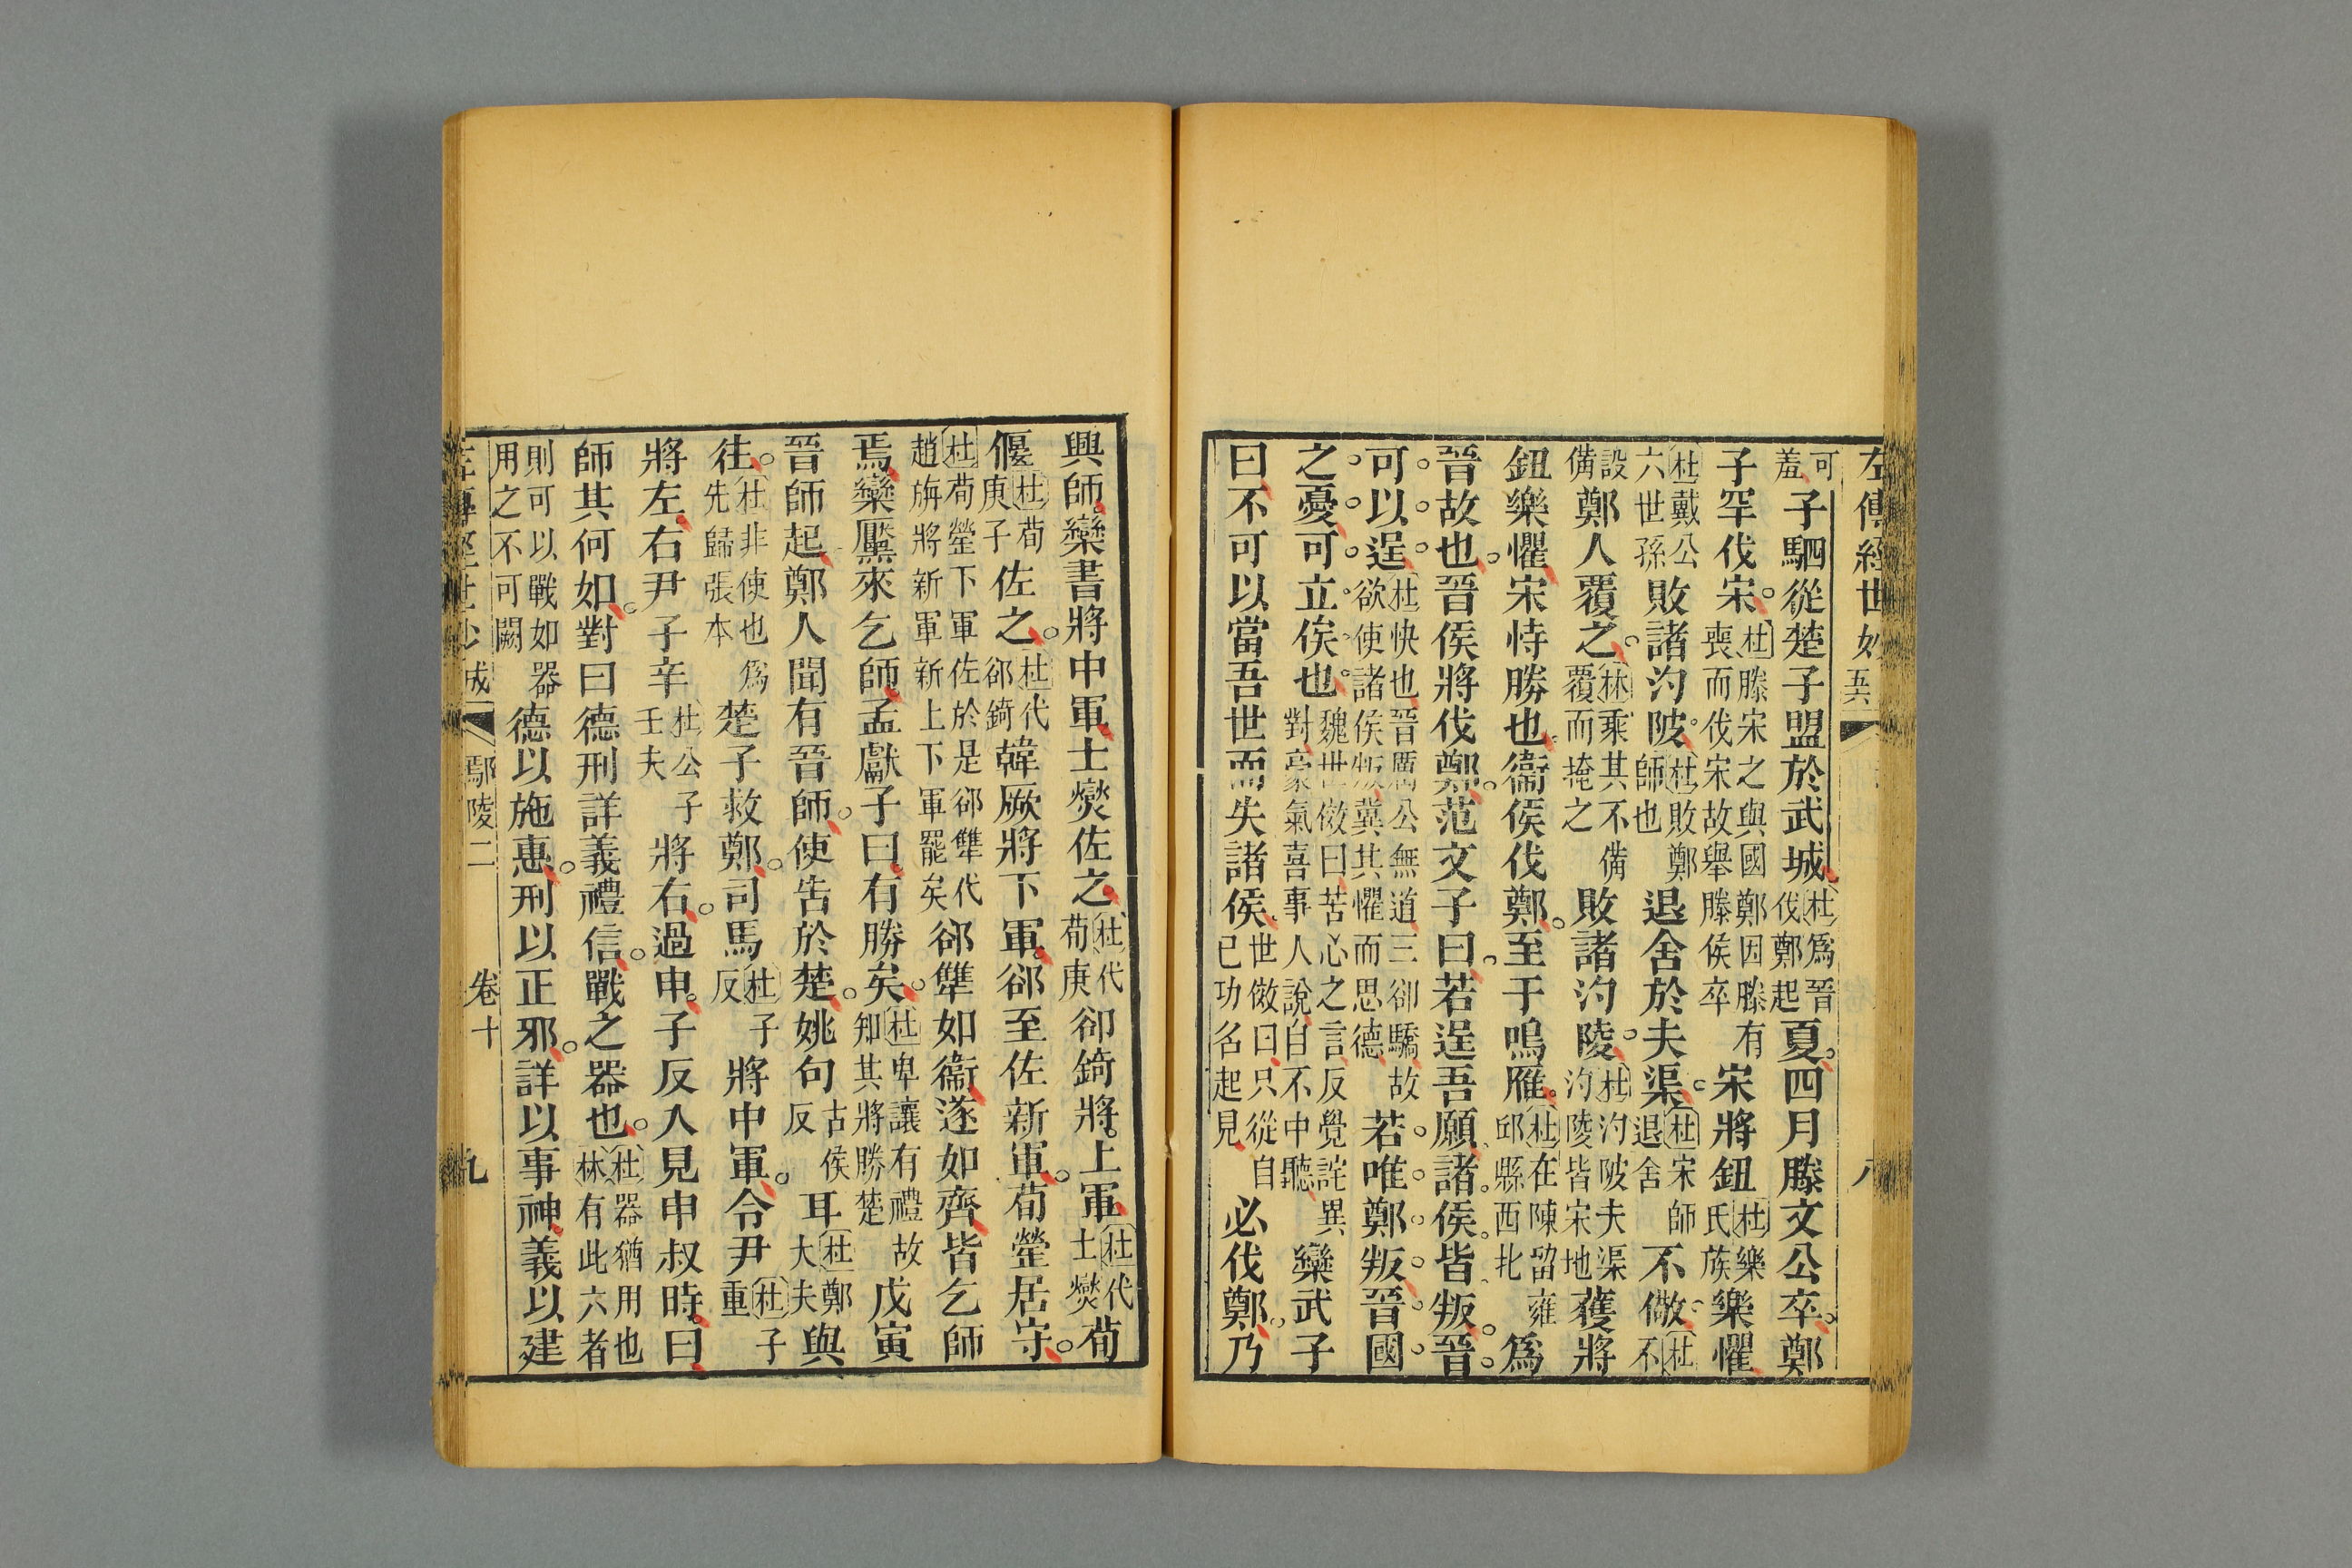 左傳經世鈔
可羞子駟從楚子盟於武城杜爲晉伐鄭起夏四月滕文公卒鄭
子罕伐宋杜滕宋之與國鄭因滕有喪而伐宋故舉滕侯卒宋將鉏杜樂氏族樂懼
杜戴公六世孫敗諸汋陂杜敗鄭師也退舍於夫渠杜宋師退舍不儆杜不
設備鄭人覆之林乘其不備覆而掩之敗諸汋陵杜汋陂夫渠汋陵皆宋地獲將
鉏樂懼宋恃勝也衞侯伐鄭至于鳴雁杜在陳留雍邱縣西北爲
晉故也晉侯將伐鄭范文子曰若逞吾願諸侯皆叛晉
可以逞杜快也晉厲公無道三郤驕故欲使諸侯叛冀其懼而思德若唯鄭叛晉國
之憂可立俟也魏世傚曰苦心之言反覺詫異對豪氣喜事人說自不中聽欒武子
曰不可以當吾世而失諸侯世傚曰只從自已功名起見必伐鄭乃
興師欒書將中軍士燮佐之杜代荀庚郤錡將上軍杜代士燮荀
偃杜荀庚子佐之杜代郤錡韓厥將下軍郤至佐新軍荀罃居守
杜荀罃下軍佐於是郤犨代趙旃將新軍新上下軍罷矣郤犨如衞遂如齊皆乞師
焉欒黶來乞師孟獻子曰有勝矣杜卑讓有禮故知其將勝楚戊寅
晉師起鄭人聞有晉師使告於楚姚句古侯反耳杜鄭大夫與
往杜非使也先歸張本爲楚子救鄭司馬杜子反將中軍令尹杜子重
將左右尹子辛杜公子壬夫將右過申子反入見申叔時曰
師其何如對曰德刑詳義禮信戰之器也杜器猶用也林有此六者
則可以戰如器用之不可闕德以施惠刑以正邪詳以事神義以建
左傳經世鈔 成 鄢陵二 卷十 九